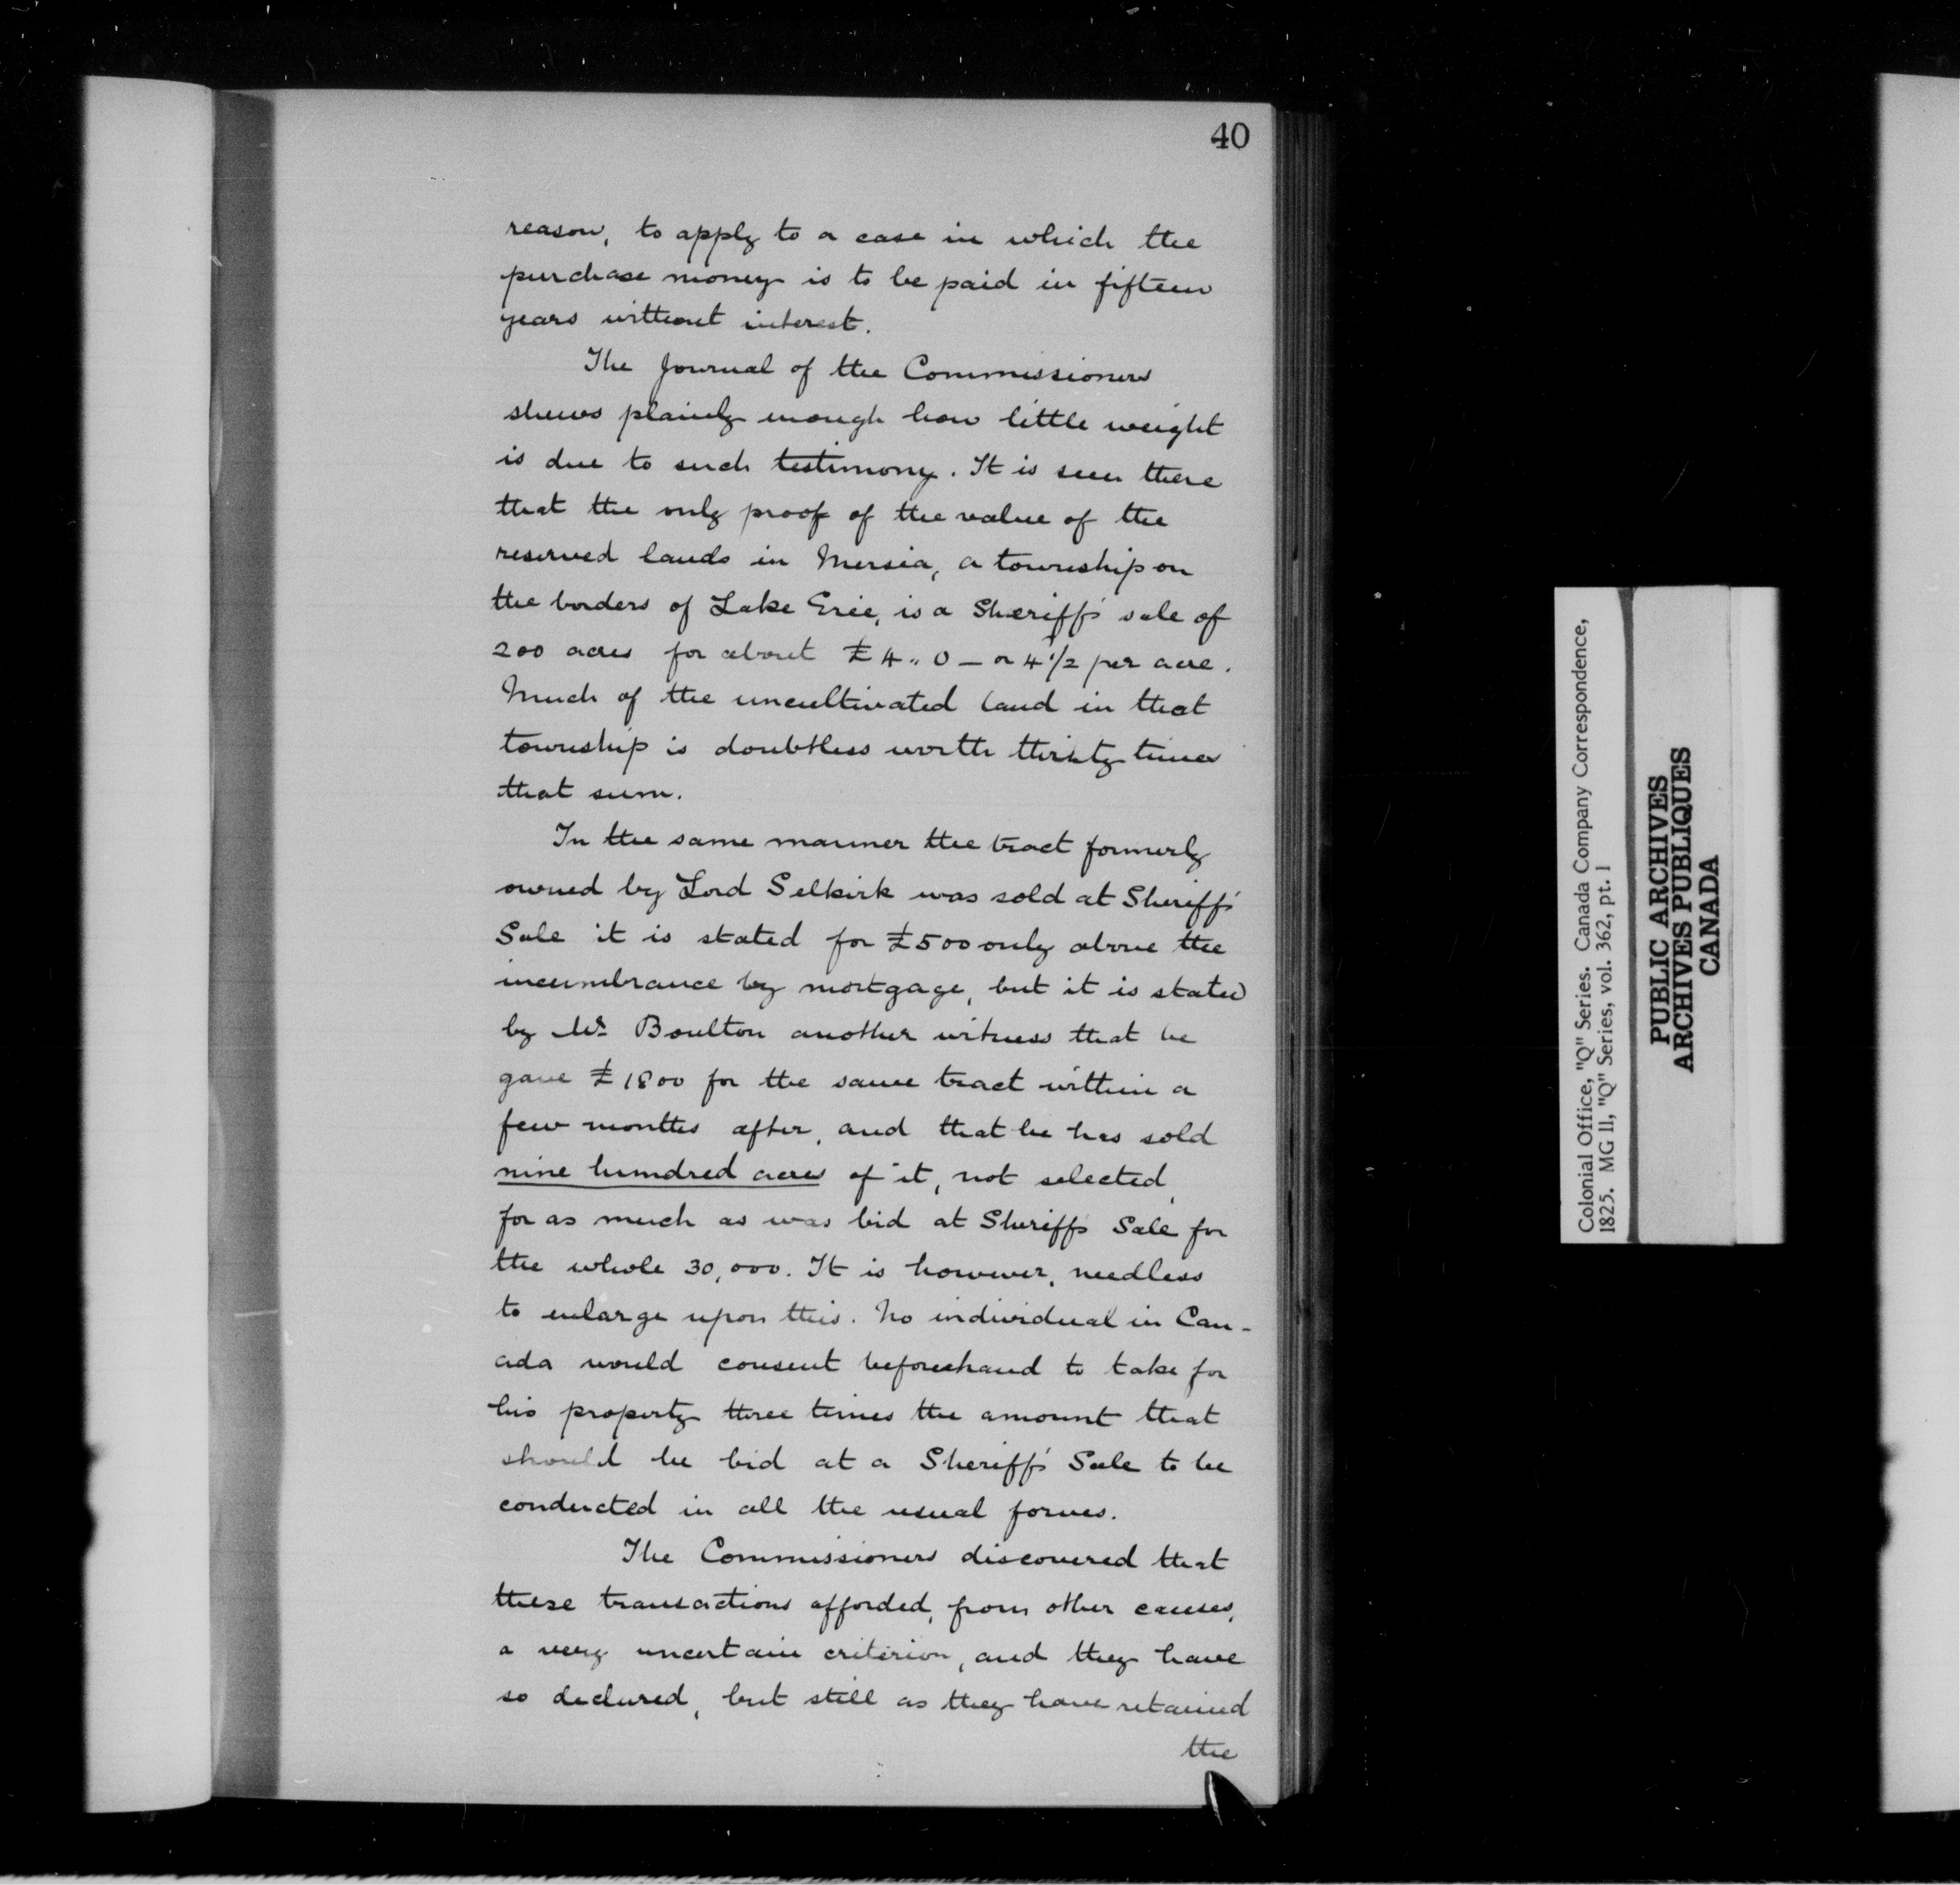 40
reason, to apply to a case in which the
purchase money is to be paid in fifteen
years without interest.
The Journal of the Commissioners
shews plainly enough how little weight
is due to such testimony. It is seen there
that the only proof of the value of the
reserved lands in Mersia, a township on
the borders of Lake Erie, is a Sheriff's sale of
200 acres for about £4.. 0 — or 4 1/2 per acre.
Much of the uncultivated land in that
township is doubtless worth thirty times
that sum.
In the same manner the tract formerly
owned by Lord Selkirk was sold at Sheriff's
Sale it is stated for £500 only above the
incumbrance by mortgage, but it is stated
by Mr. Boulton another witness that he
gave £1800 for the same tract within a
few months after, and that he has sold
nine hundred acres of it, not selected,
for as much as was bid at Sheriff's Sale for
the whole 30,000. It is however, needless
to enlarge upon this. No individual in Can-
ada would consent beforehand to take for
his property three times the amount that
should be bid at a Sheriff's Sale to be
conducted in all the usual forms.
The Commissioners discovered that
these transactions afforded, from other causes,
a very uncertain criterion, and they have
so declared, but still as they have retained
the
Colonial Office, "Q" Series. Canada Company Correspondence,
1825. MG 11, "Q" Series, vol. 362, pt. 1
PUBLIC ARCHIVES
ARCHIVES PUBLIQUES
CANADA